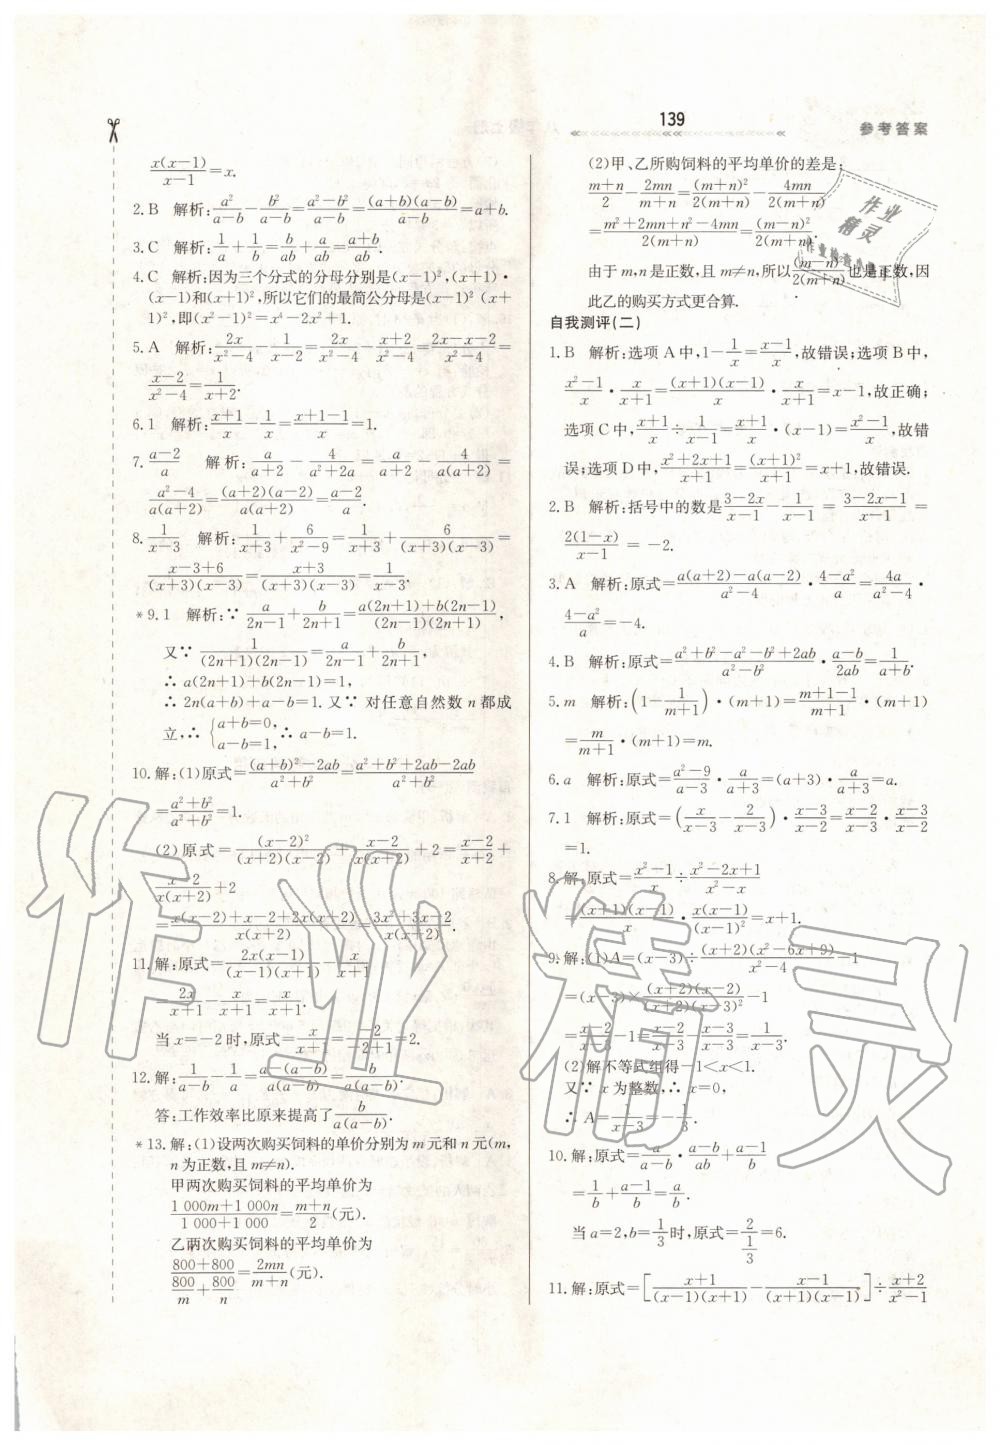 139
参考答案
x(x−1)/(x−1)=x.
2.B 解析:a²/(a−b)−b²/(a−b)=(a²−b²)/(a−b)=(a+b)(a−b)/(a−b)=a+b.
3.C 解析:1/a+1/b=b/ab+a/ab=(a+b)/ab.
4.C 解析:因为三个分式的分母分别是(x−1)²,(x+1)·
(x−1)和(x+1)²,所以它们的最简公分母是(x−1)²(x+
1)²,即(x²−1)²=x⁴−2x²+1.
5.A 解析:2x/(x²−4)−1/(x−2)=2x/(x²−4)−(x+2)/(x²−4)=(2x−x−2)/(x²−4)=
(x−2)/(x²−4)=1/(x+2).
6.1 解析:(x+1)/x−1/x=(x+1−1)/x=1.
7.(a−2)/a 解析:a/(a+2)−4/(a²+2a)=a/(a+2)−4/a(a+2)=
(a²−4)/a(a+2)=(a+2)(a−2)/a(a+2)=(a−2)/a.
8.1/(x−3) 解析:1/(x+3)+6/(x²−9)=1/(x+3)+6/(x+3)(x−3)=
(x−3+6)/(x+3)(x−3)=(x+3)/(x+3)(x−3)=1/(x−3).
*9.1 解析:∵a/(2n−1)+b/(2n+1)=[a(2n+1)+b(2n−1)]/(2n−1)(2n+1),
又∵1/(2n+1)(2n−1)=a/(2n−1)+b/(2n+1),
∴a(2n+1)+b(2n−1)=1,
∴2n(a+b)+a−b=1.又∵对任意自然数n都成
立,∴{a+b=0, a−b=1,∴a−b=1.
10.解:(1)原式=[(a+b)²−2ab]/(a²+b²)=(a²+b²+2ab−2ab)/(a²+b²)
=(a²+b²)/(a²+b²)=1.
(2)原式=(x−2)²/(x+2)(x−2)+(x−2)/x(x+2)+2=(x−2)/(x+2)+
(x−2)/x(x+2)+2
=[x(x−2)+x−2+2x(x+2)]/x(x+2)=(3x²+3x−2)/x(x+2).
11.解:原式=2x(x−1)/(x−1)(x+1)−x/(x+1)
=2x/(x+1)−x/(x+1)=x/(x+1).
当x=−2时,原式=x/(x+1)=−2/(−2+1)=2.
12.解:1/(a−b)−1/a=[a−(a−b)]/a(a−b)=b/a(a−b).
答:工作效率比原来提高了b/a(a−b).
*13.解:(1)设两次购买饲料的单价分别为m元和n元(m,
n为正数,且m≠n).
甲两次购买饲料的平均单价为
(1 000m+1 000n)/(1 000+1 000)=(m+n)/2(元).
乙两次购买饲料的平均单价为
(800+800)/(800/m+800/n)=2mn/(m+n)(元).
(2)甲、乙所购饲料的平均单价的差是:
(m+n)/2−2mn/(m+n)=(m+n)²/2(m+n)−4mn/2(m+n)
=(m²+2mn+n²−4mn)/2(m+n)=(m−n)²/2(m+n).
由于m,n是正数,且m≠n,所以(m−n)²/2(m+n)也是正数,因
此乙的购买方式更合算.
自我测评(二)
1.B 解析:选项A中,1−1/x=(x−1)/x,故错误;选项B中,
(x²−1)/x·x/(x+1)=(x+1)(x−1)/x·x/(x+1)=x−1,故正确;
选项C中,(x+1)/x÷1/(x−1)=(x+1)/x·(x−1)=(x²−1)/x,故错
误;选项D中,(x²+2x+1)/(x+1)=(x+1)²/(x+1)=x+1,故错误.
2.B 解析:括号中的数是(3−2x)/(x−1)−1/(x−1)=(3−2x−1)/(x−1)=
2(1−x)/(x−1)=−2.
3.A 解析:原式=[a(a+2)−a(a−2)]/(a²−4)·(4−a²)/a=4a/(a²−4)·
(4−a²)/a=−4.
4.B 解析:原式=(a²+b²−a²−b²+2ab)/(a²−b²)·(a−b)/2ab=1/(a+b).
5.m 解析:(1−1/(m+1))·(m+1)=(m+1−1)/(m+1)·(m+1)
=m/(m+1)·(m+1)=m.
6.a 解析:原式=(a²−9)/(a−3)·a/(a+3)=(a+3)·a/(a+3)=a.
7.1 解析:原式=(x/(x−3)−2/(x−3))·(x−3)/(x−2)=(x−2)/(x−3)·(x−3)/(x−2)
=1.
8.解:原式=(x²−1)/x÷(x²−2x+1)/(x²−x)
=(x+1)(x−1)/x·x(x−1)/(x−1)²=x+1.
9.解:(1)A=(x−3)÷(x+2)(x²−6x+9)/(x²−4)−1
=(x−3)×(x+2)(x−2)/(x+2)(x−3)²−1
=(x−2)/(x−3)−1=(x−2)/(x−3)−(x−3)/(x−3)=1/(x−3).
(2)解不等式组得−1<x<1.
又∵x为整数,∴x=0,
∴A=1/(x−3)=−1/3.
10.解:原式=a/(a−b)·(a−b)/ab+(a−1)/b
=1/b+(a−1)/b=a/b.
当a=2,b=1/3时,原式=2/(1/3)=6.
11.解:原式=[(x+1)/(x−1)(x+1)−(x−1)/(x+1)(x−1)]÷(x+2)/(x²−1)
作业
精灵
作业精灵